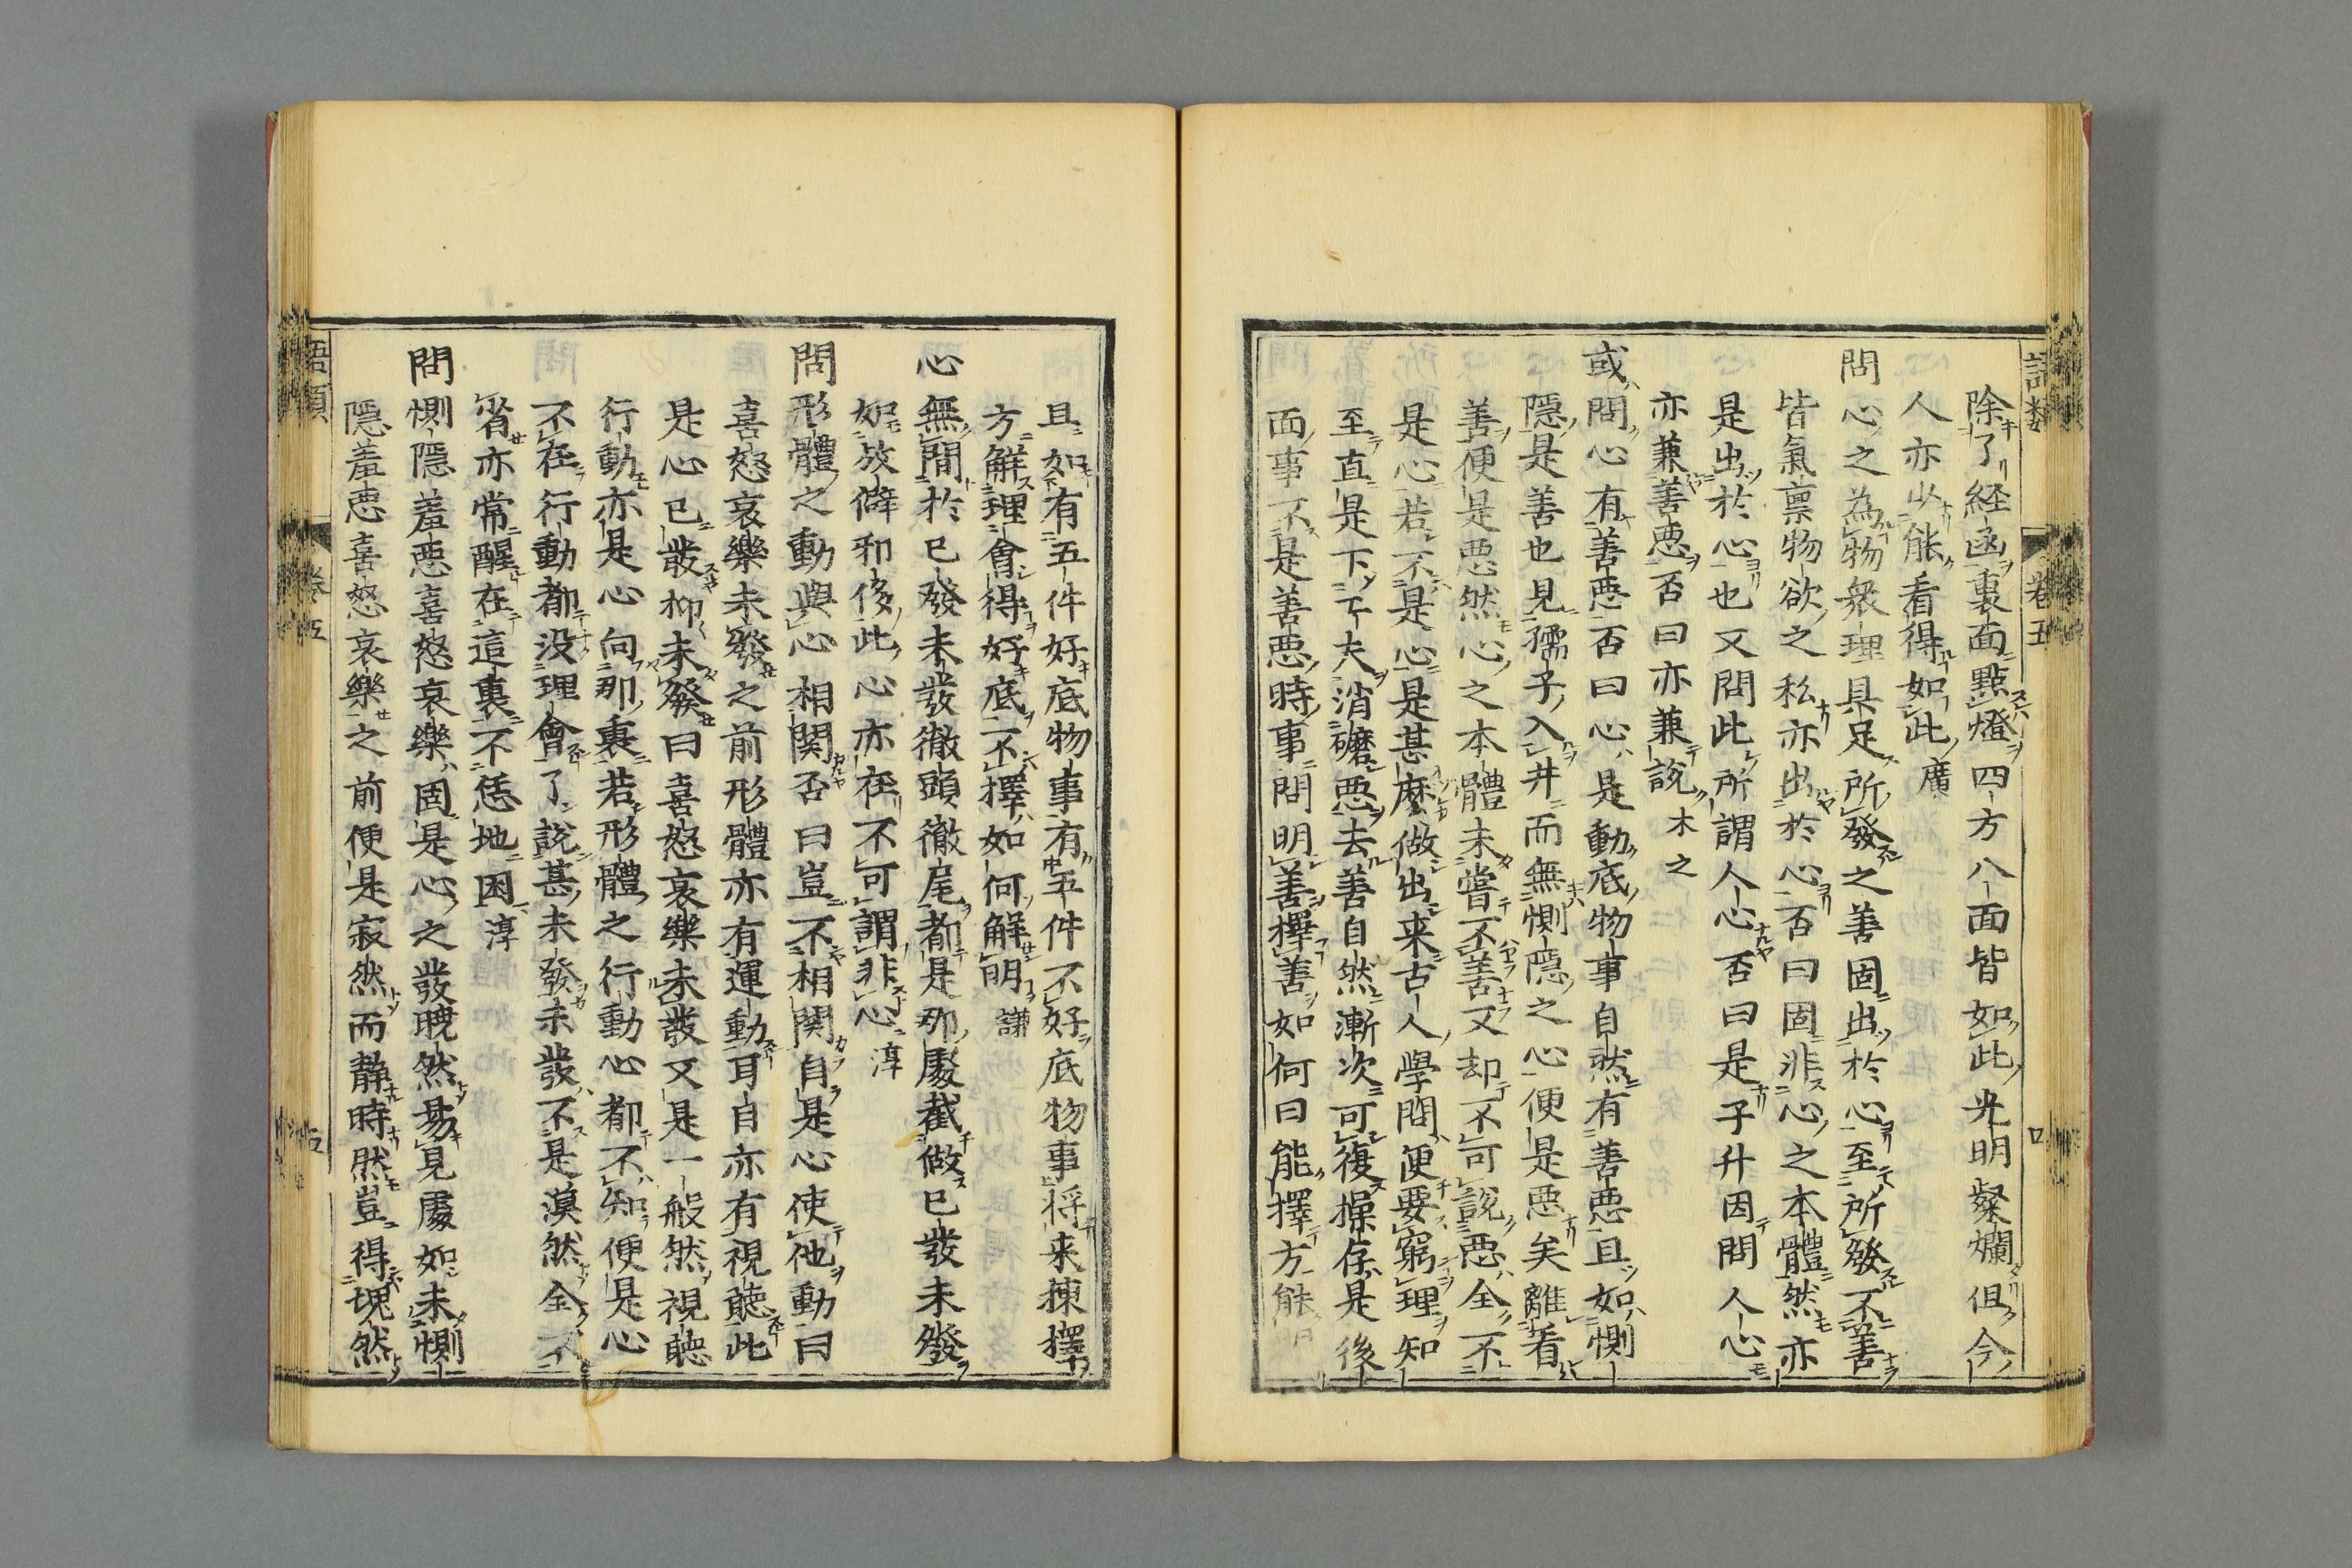 語類 卷五
除了経函裏面點燈四方八面皆如此光明粲爛但今
人亦少能看得如此廣
問心之為物衆理具足所發之善固出於心至所發不善
皆氣禀物欲之私亦出於心否曰固非心之本體然亦
是出於心也又問此所謂人心否曰是子升因問人心
亦兼善悪否曰亦兼說木之
或問心有善悪否曰心是動底物事自然有善悪且如惻
隱是善也見孺子入井而無惻隱之心便是悪矣離看
善便是悪然心之本體未嘗不善又却不可說悪全不
是心若不是心是甚麽做出来古人學問便要窮理知
至直是下工夫消磨悪去善自然漸次可復操存是後
面事不是善悪時事問明善擇善如何曰能擇方能明
且如有五件好底物事有五件不好底物事將来揀擇
方解理會得好底不擇如何解明謙
心無間於已發未發徹頭徹尾都是那處截做已發未發
如放僻邪侈此心亦在不可謂非心淳
問形體之動與心相関否曰豈不相関自是心使他動曰
喜怒哀樂未發之前形體亦有運動耳目亦有視聽此
是心已發抑未發曰喜怒哀樂未發又是一般然視聽
行動亦是心向那裏若形體之行動心都不知便是心
不在行動都没理會了說甚未發未發不是漠然全不
省亦常醒在這裏不恁地困淳
問惻隱羞悪喜怒哀樂固是心之發曉然易見處如未惻
隱羞悪喜怒哀樂之前便是寂然而靜時然豈得塊然
語類 卷五 五